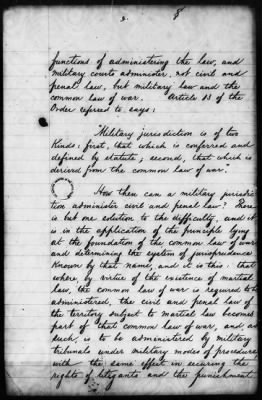 2. 8
functions of administering the law, and
military courts administer, not civil and
penal law, but military law and the
common law of war. Article 13 of the
Order referred to says:
"Military jurisdiction is of two
kinds: first, that which is conferred and
defined by statute; second, that which is
derived from the common law of war."
How then can a military jurisdic-
tion administer civil and penal law? There
is but one solution to the difficulty, and it
is in the application of the principle lying
at the foundation of the common law of war
and determining the system of jurisprudence
known by that name, and it is this: that
when, by virtue of the existence of martial
law, the common law of war is required to be
administered, the civil and penal law of
the territory subject to martial law becomes
part of that common law of war, and, as
such, is to be administered by military
tribunals under military modes of procedure
with the same effect in securing the
rights of litigants and the punishment